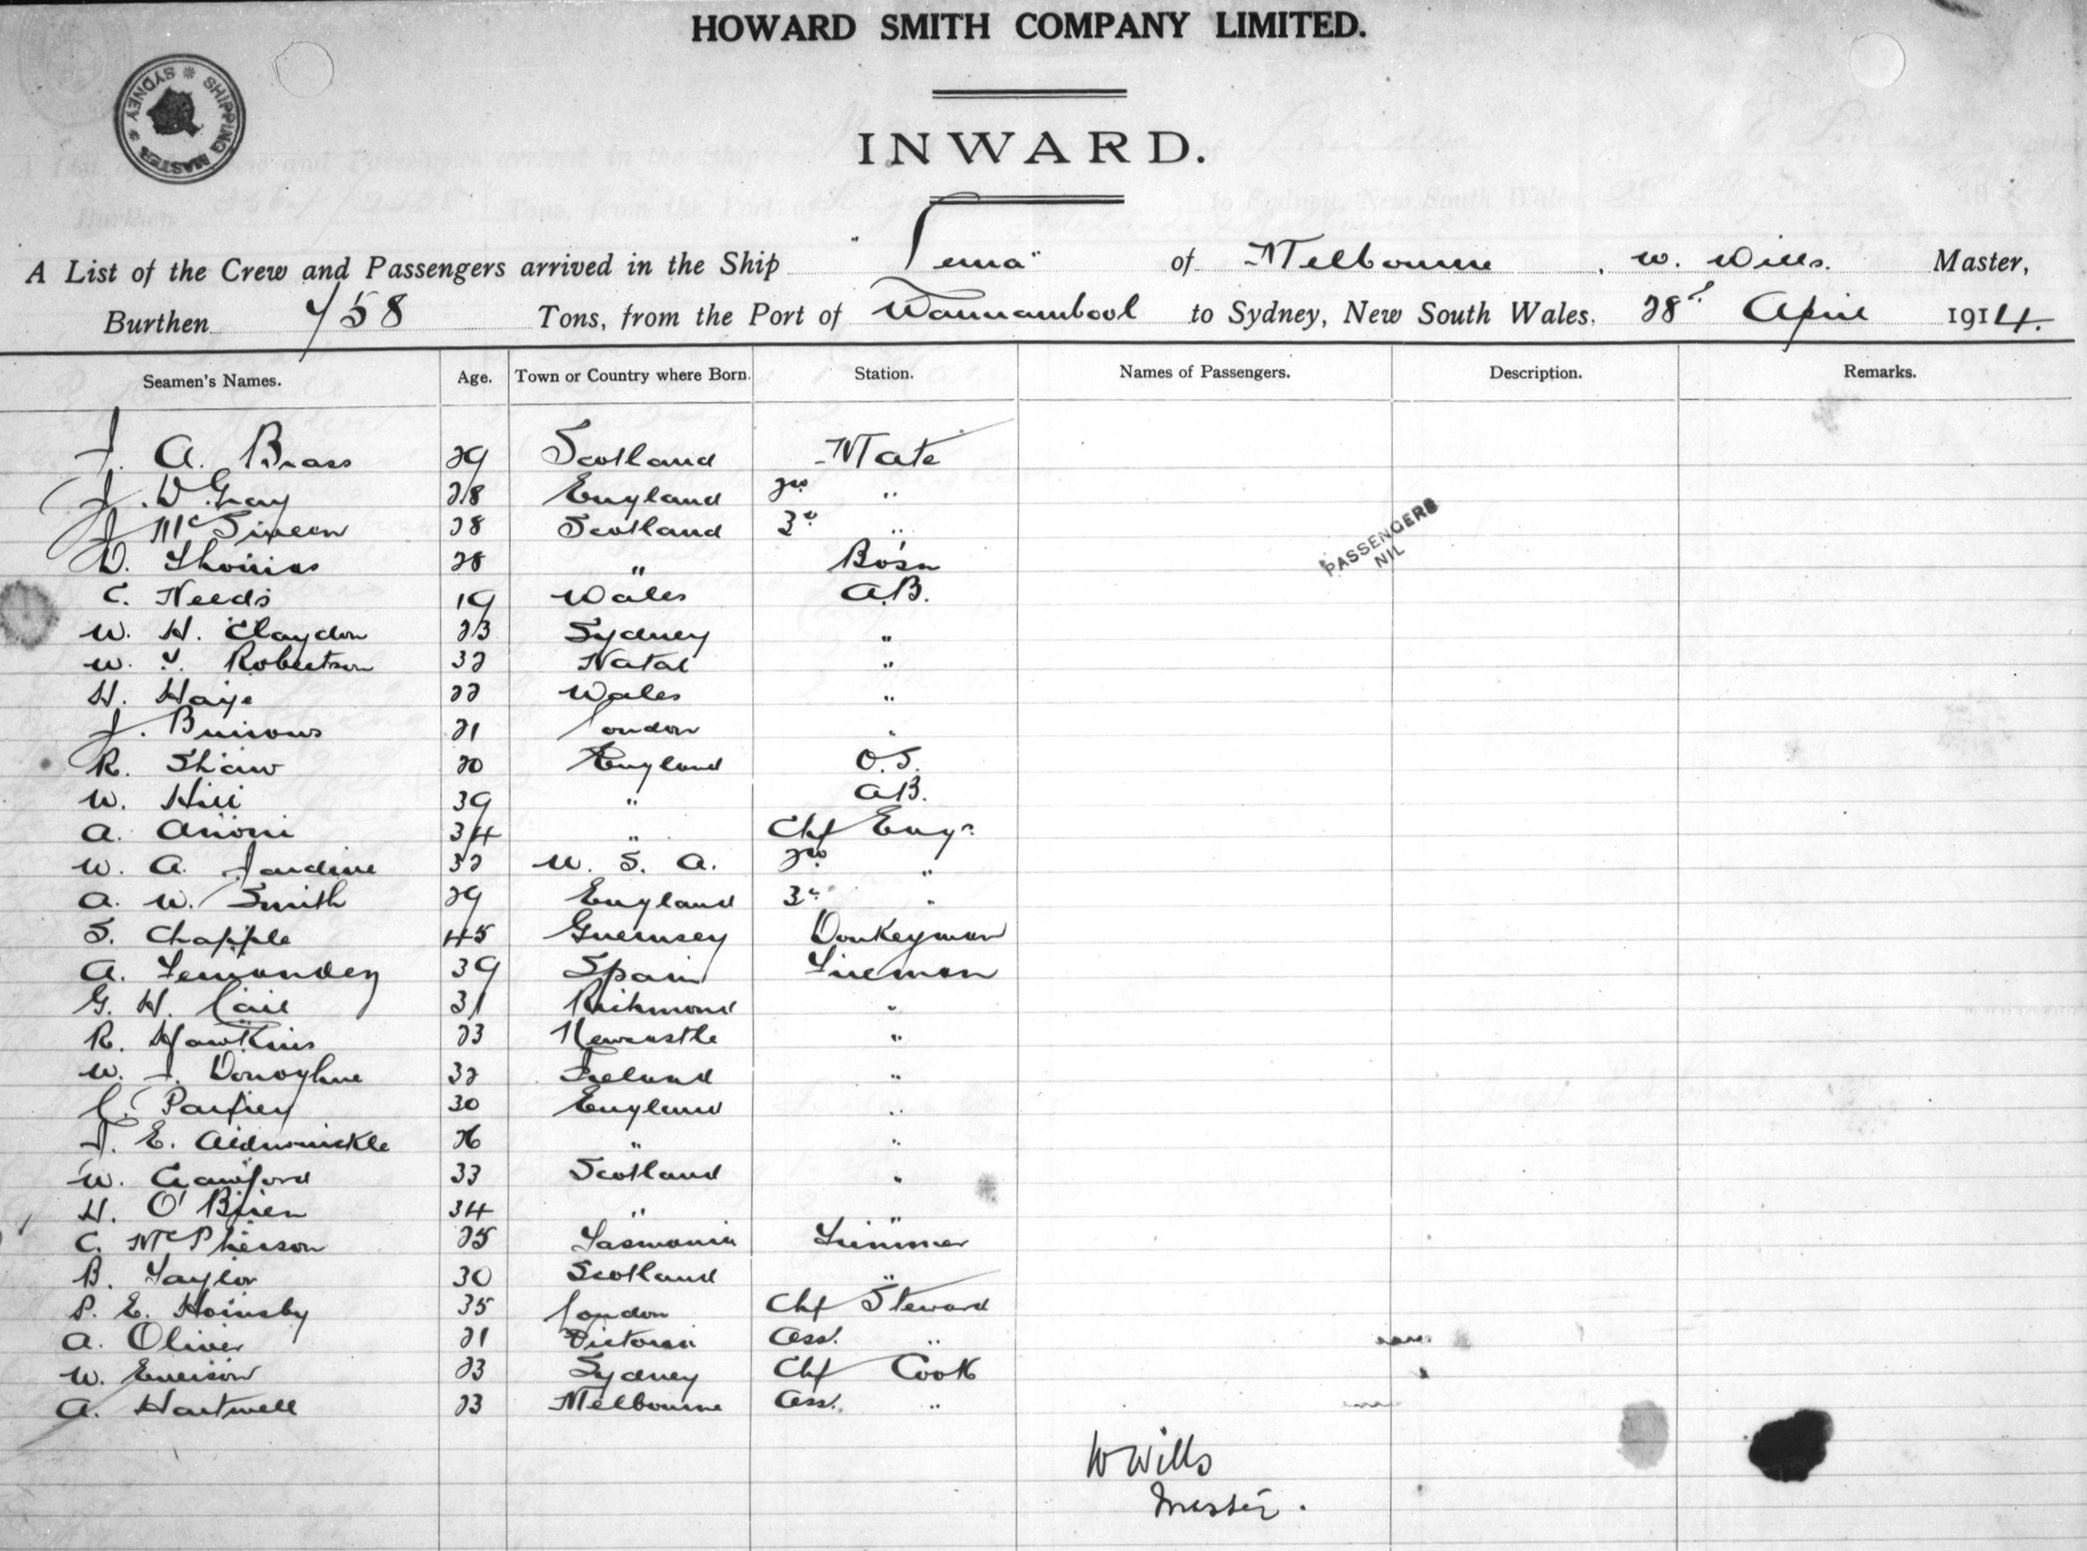 HOWARD SMITH COMPANY LIMITED.
SHIPPING MASTER * SYDNEY *
INWARD.
A List of the Crew and Passengers arrived in the Ship " " of Melbourne, W. Wills. Master,
Burthen 758 Tons, from the Port of Warrnambool to Sydney, New South Wales, 28th April 1914.
Seamen's Names. Age. Town or Country where Born. Station. Names of Passengers. Description. Remarks.
J. A. Brass 29 Scotland Mate
J. W. Gray 28 England 2nd "
J. 28 Scotland 3rd "
D. Thomas 28 " Bosn
C. Needs 19 Wales A.B.
PASSENGERS
NIL
W. H. Claydon 23 Sydney "
W. Robertson 32 Natal "
H. Haye 22 Wales "
J. Burrows 21 London "
R. Shaw 20 England O.S.
W. Hill 39 " A.B.
A. 34 " Chf Engr
W. A. Jardine 32 U. S. A. 2nd "
A. W. Smith 29 England 3rd "
S. Chapple 45 Guernsey Donkeyman
A. Fernandez 39 Spain Fireman
G. H. Cail 31 Richmond "
R. Hawkins 23 Newcastle "
W. J. Donoghue 32 Ireland "
C. Parfrey 30 England "
J. E. Aldwinckle 26 " "
W. Crawford 33 Scotland "
H. O'Brien 34 " "
C. McPherson 25 Tasmania Trimmer
B. Taylor 30 Scotland "
P. E. Hornsby 35 London Chf Steward
A. Oliver 21 Victoria Ass. "
W. Emerson 23 Sydney Chf Cook
A. Hartwell 23 Melbourne Ass. "
W Wills
Master.